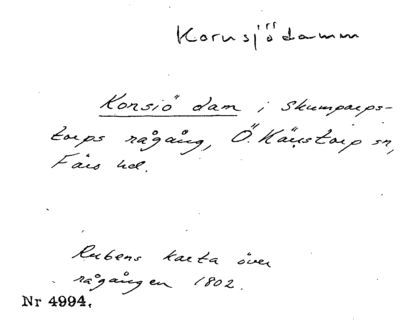 Kornsjödamm
Konsiö dam i Skumparps-
torps rågång, Ö. Kärstorp sn,
Färs hd.
Rubens karta över
rågången 1802.
Nr 4994.